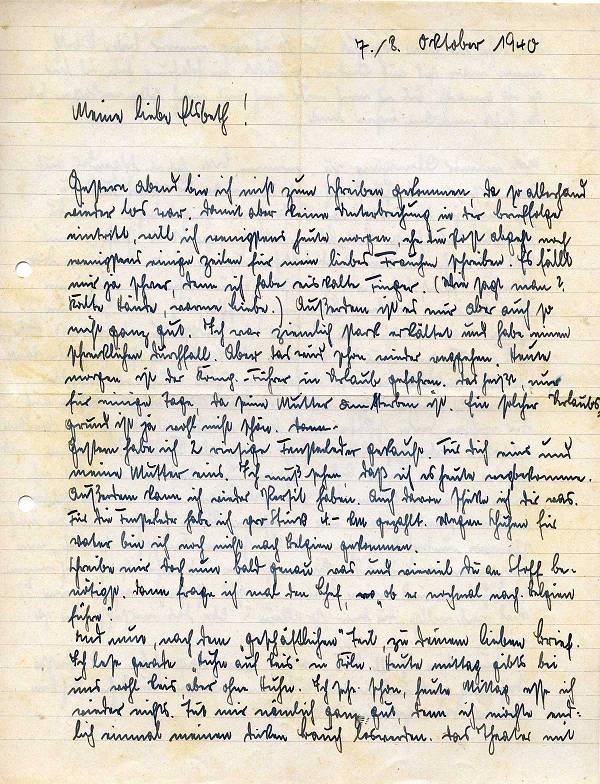 7./8. Oktober 1940
Meine liebe Elsbeth!
Gestern Abend bin ich nicht zum Schreiben gekommen, da so allerhand
wieder los war. Damit aber keine Unterbrechung in der Brieffolge
eintritt, will ich wenigstens heute morgen, ehe die Post abgeht noch
wenigstens einige Zeilen für mein liebes Frauchen schreiben. Es fällt
mir ja schwer, denn ich habe eiskalte Finger. (Wie sagt man?
Kalte Hände, warme Liebe.) Außerdem ist es mir aber auch so
nicht ganz gut. Ich war ziemlich stark erkältet und habe einen
schrecklichen Durchfall. Aber das wird schon wieder vergehen. Heute
morgen ist der Komp.-Führer in Urlaub gefahren. Das heißt, nur
für einige Tage, da seine Mutter am Sterben ist. Ein solcher Urlaubs-
grund ist ja wohl nicht schön. Dann-
Gestern habe ich 2 riesige Fensterleder gekauft. Für dich eins und
meine Mutter eins. Ich muß sehen, daß ich es heute wegbekomme.
Außerdem kann ich wieder Persil haben. Auch davon schicke ich dir was.
Für die Fensterleder habe ich pro Stück 4.- RM gezahlt. Wegen Schuhen für
Vater bin ich noch nicht nach Belgien gekommen.
Schreibe mir doch nun bald genau was und wieviel du an Stoff be-
nötigst. Dann frage ich mal den Chef, ob er nochmal nach Belgien
führe".
Und nun, nach dem "geschäftlichen" Teil, zu deinem lieben Brief.
Ich lese gerade "Huhn auf Reis" in Köln. Heute mittag gibts bei
uns wohl Reis aber ohne Huhn. Ich sehe schon, heute Mittag esse ich
wieder nichts. Tut mir nämlich ganz gut, denn ich möchte end-
lich einmal meinen dicken Bauch loswerden. Das Theater mit